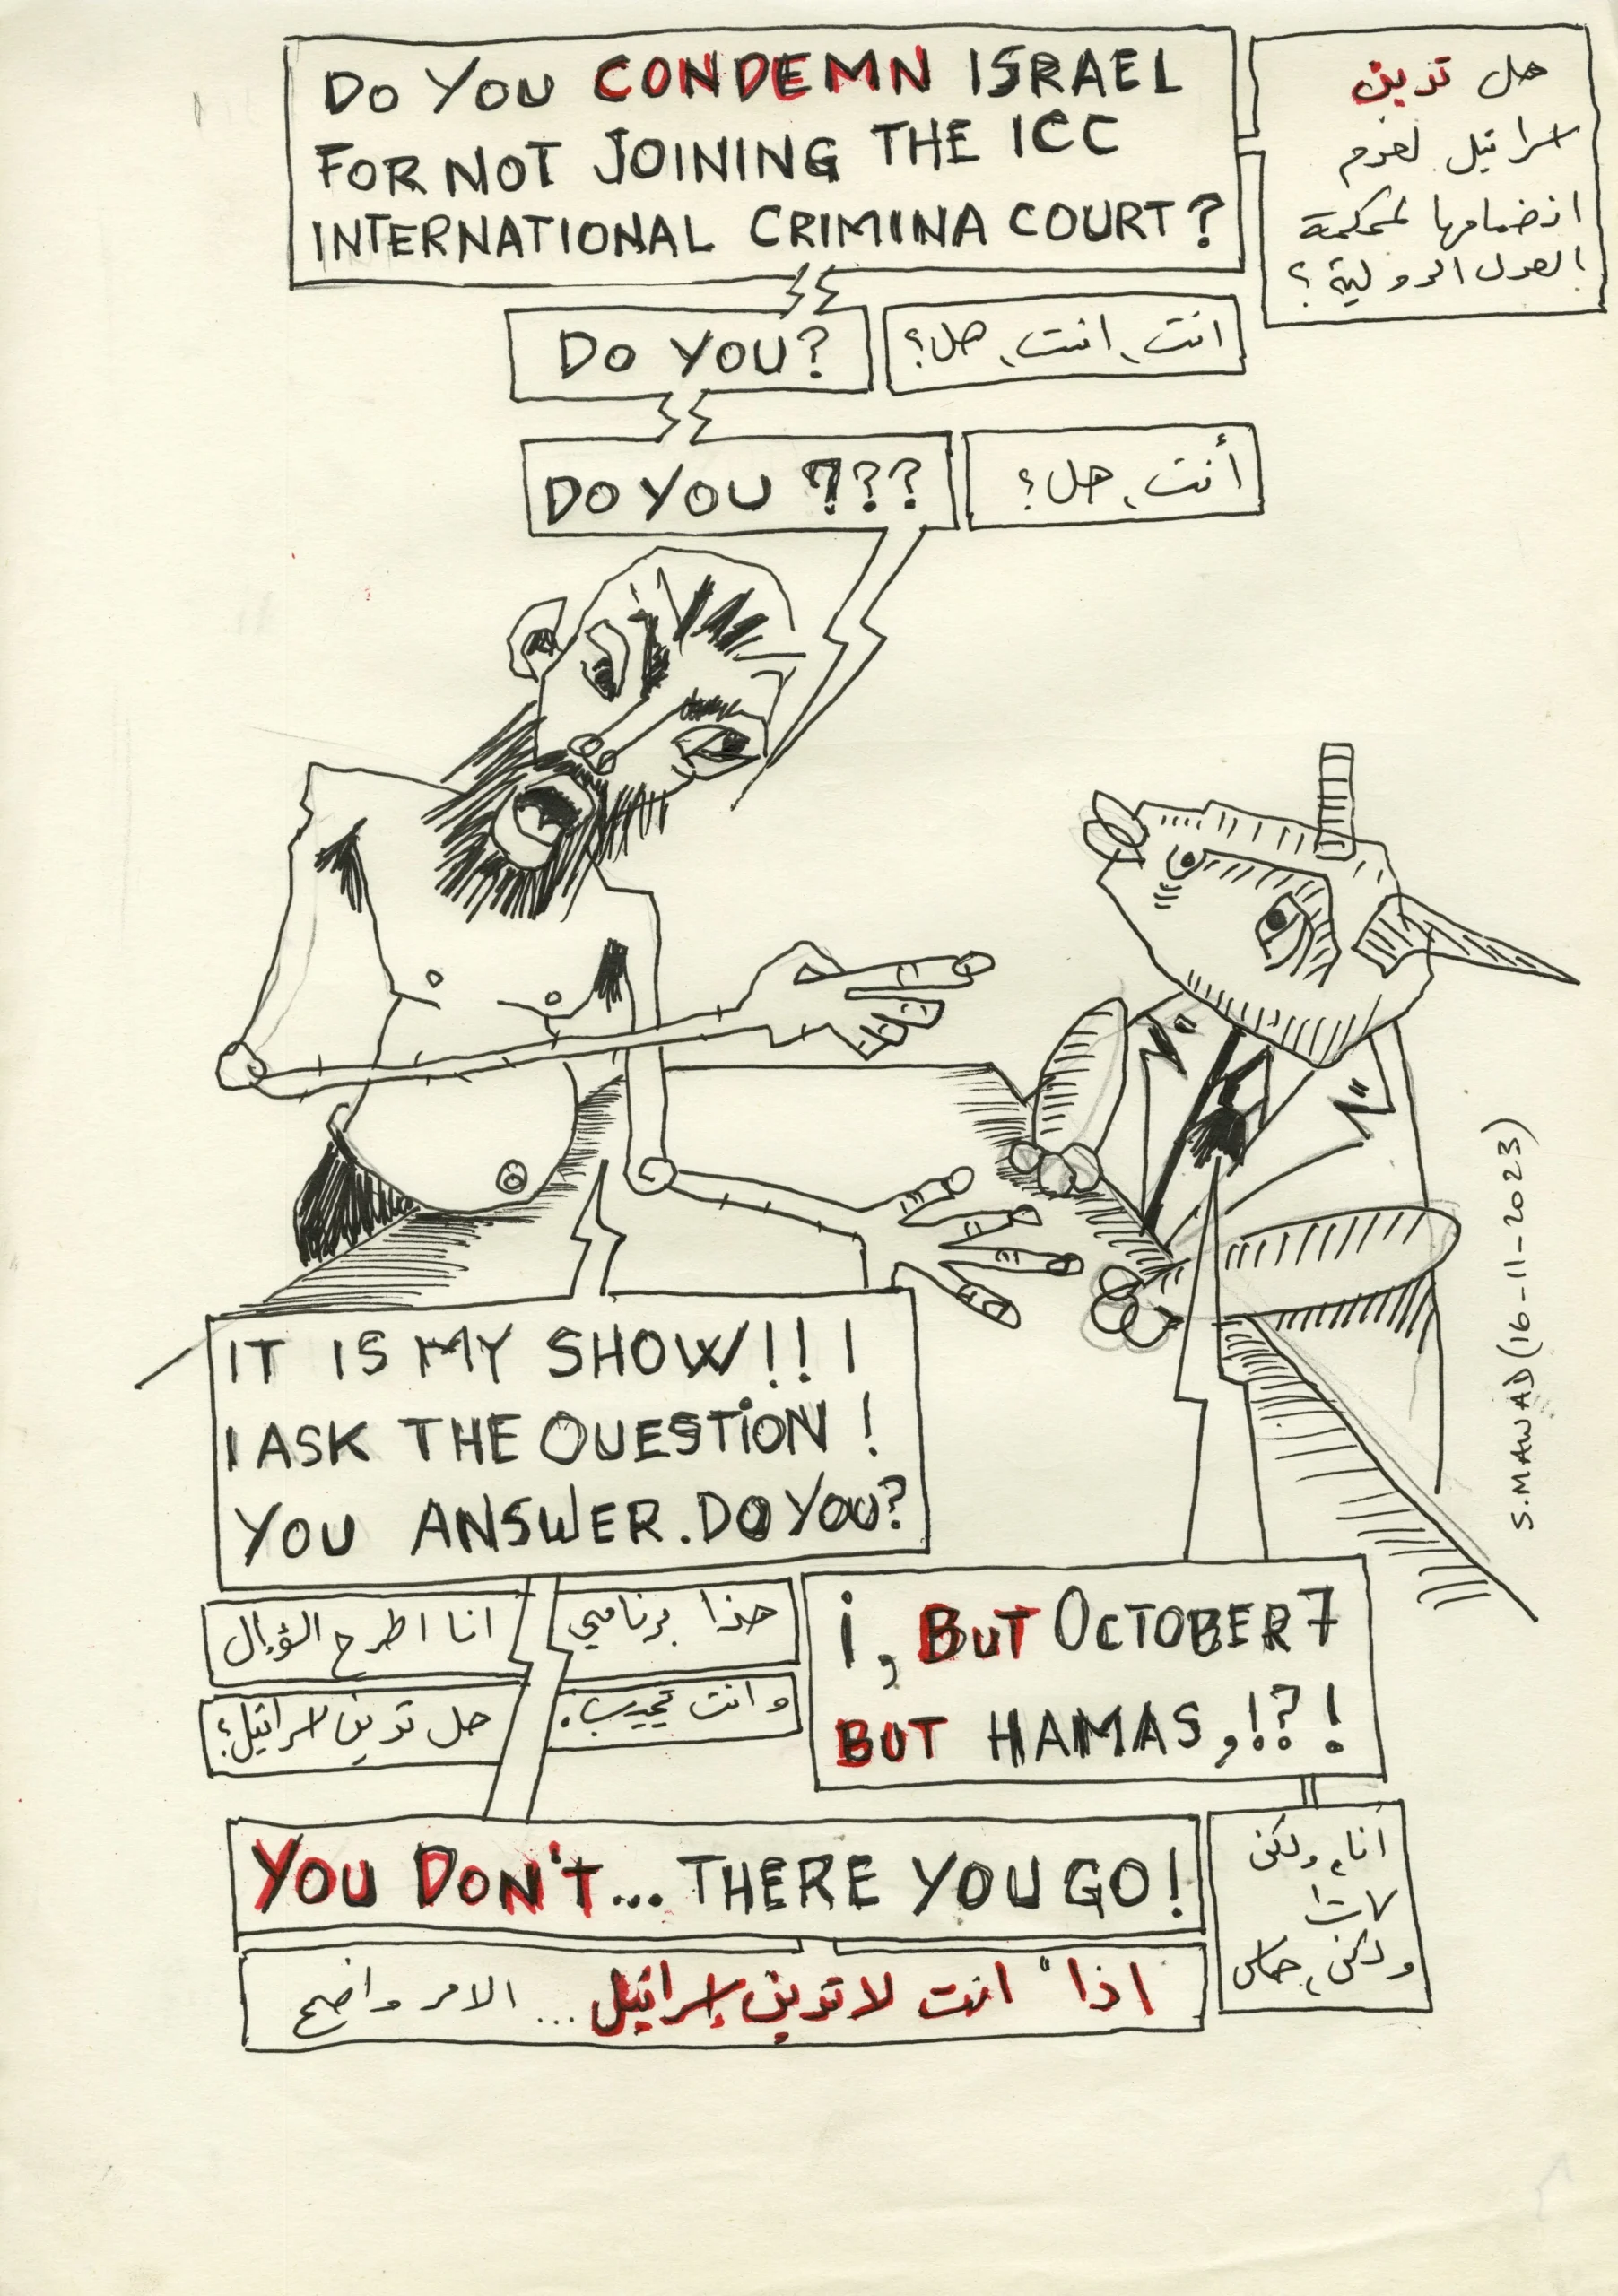 DO YOU CONDEMN ISRAEL
FOR NOT JOINING THE ICC
INTERNATIONAL CRIMINA COURT?
هل تدين
اسرائيل لعدم
انضمامها لمحكمة
العدل الدولية؟
DO YOU?
انت، انت، هل؟
DO YOU ???
أنت، هل؟
IT IS MY SHOW!!!
I ASK THE QUESTION!
YOU ANSWER. DO YOU?
هذا برنامجي
انا اطرح السؤال
وانت تجيب.
هل تدين اسرائيل؟
i, BUT OCTOBER 7
BUT HAMAS,!?!
أنا، ولكن
ولكن، حماس
YOU DON'T... THERE YOU GO!
اذا انت لا تدين إسرائيل... الامر واضح
S. MAWAD (16-11-2023)